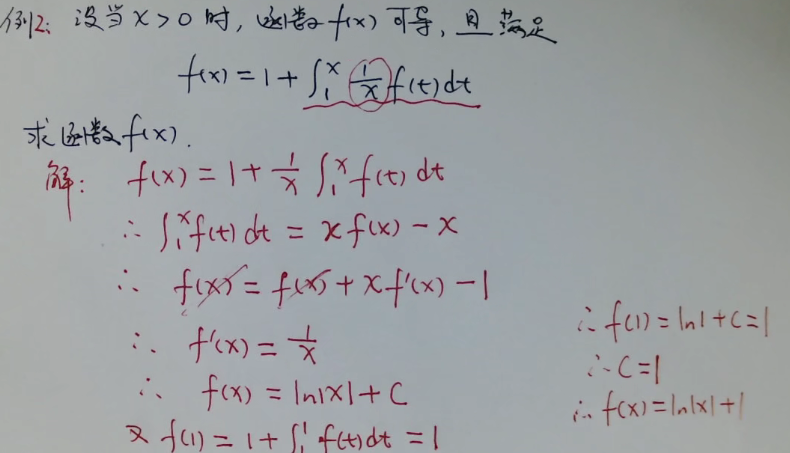 例2: 设当 x > 0 时, 函数 f(x) 可导, 且满足
f(x) = 1 + ∫₁ˣ (1/x) f(t) dt
求函数 f(x).
解: f(x) = 1 + (1/x) ∫₁ˣ f(t) dt
∴ ∫₁ˣ f(t) dt = x f(x) − x
∴ f(x) = f(x) + x f'(x) − 1
∴ f'(x) = 1/x
∴ f(x) = ln|x| + C
又 f(1) = 1 + ∫₁¹ f(t) dt = 1
∴ f(1) = ln1 + C = 1
∴ C = 1
∴ f(x) = ln|x| + 1